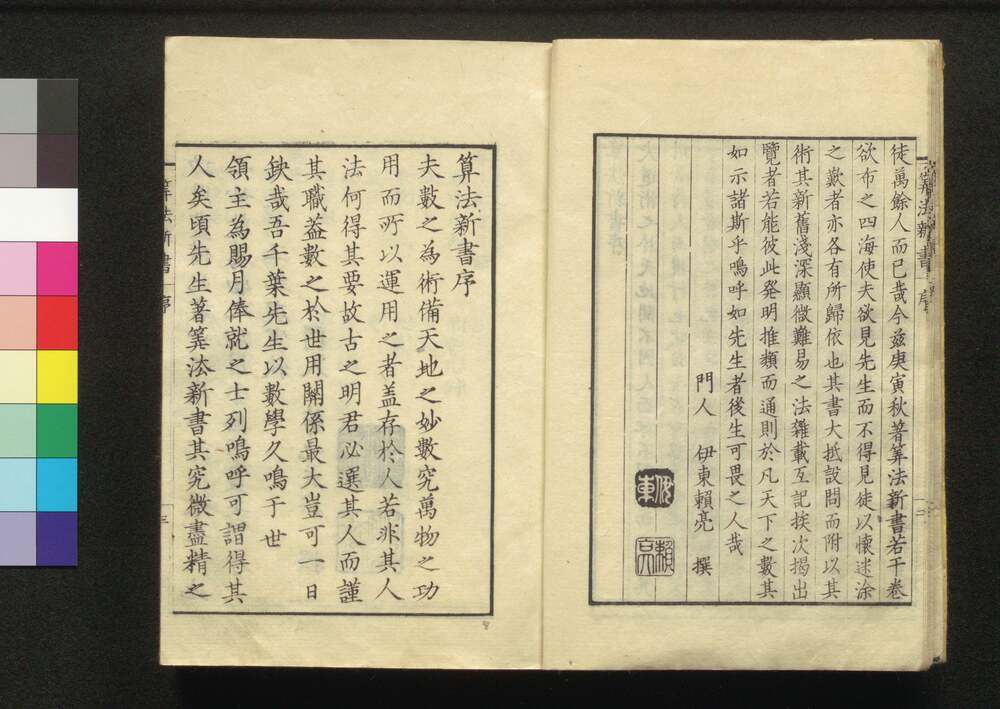 徒萬餘人而已哉今茲庚寅秋著筭法新書若干卷
欲布之四海使夫欲見先生而不得見徒以懷迷涂
之歎者亦各有所歸依也其書大抵設問而附以其
術其新舊淺深顯微難易之法雜載互記挨次揭出
覽者若能彼此発明推類而通則於凡天下之數其
如示諸斯乎嗚呼如先生者後生可畏之人哉
門人 伊東賴亮 撰
伊東
賴亮
算法新書序
夫數之為術備天地之妙數究萬物之功
用而所以運用之者盖存於人若非其人
法何得其要故古之明君必選其人而謹
其職葢數之於世用關係最大豈可一日
缺哉吾千葉先生以數學久鳴于世
領主為賜月俸就之士列嗚呼可謂得其
人矣頃先生著筭法新書其究微盡精之
算法新書 序 三